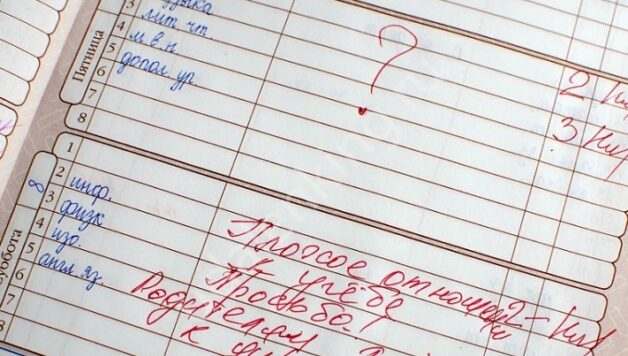 3
лит. чт.
4
м. в. н
5
допол. ур.
6
7
8
Пятница
?
2
3
1
2
инф.
3
физк
4
изо.
5
англ. яз.
6
7
8
Суббота
Плохое отношен
2 –
к учёбе
Просьба!
Родителям
к